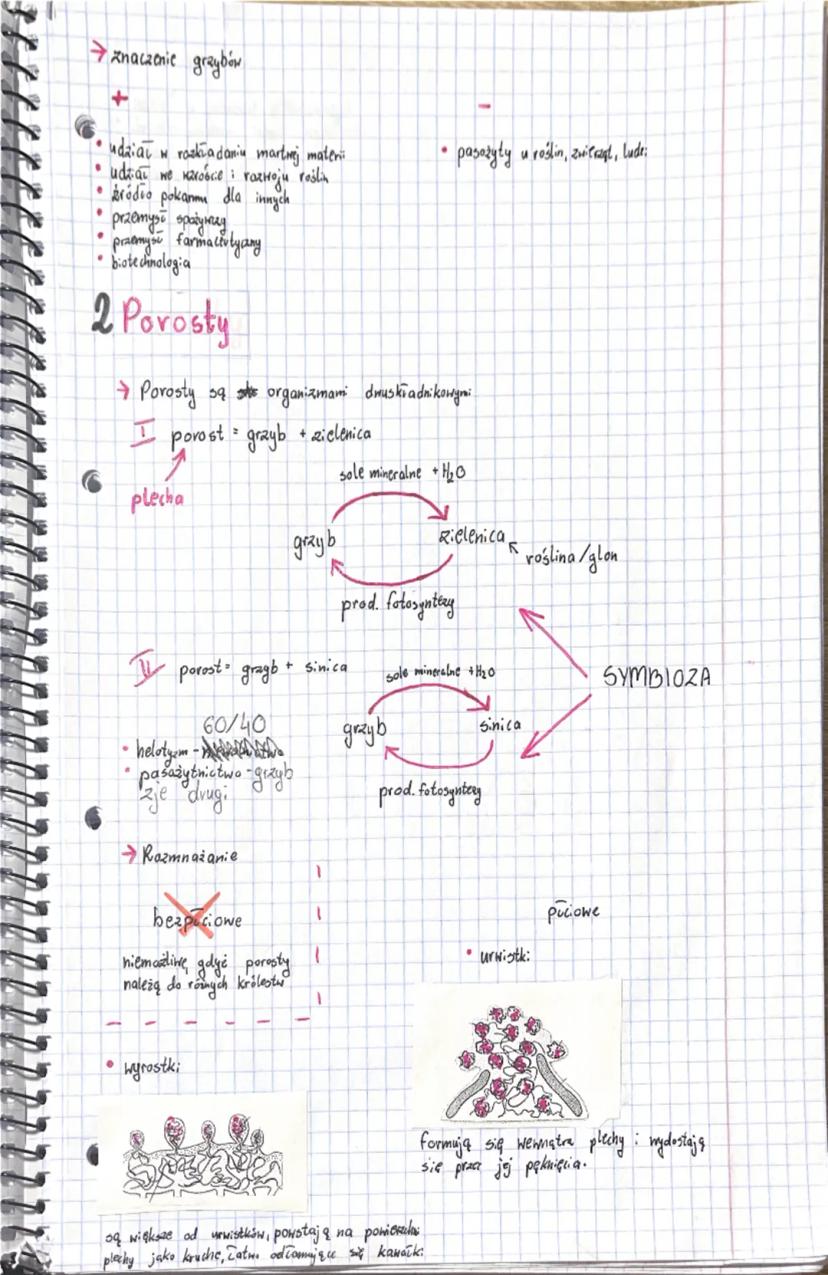 → znaczenie grzybów
+
-
• udział w rozkładaniu martwej materii
• udział we wzroście i rozwoju roślin
• źródło pokarmu dla innych
• przemysł spożywczy
• przemysł farmaceutyczny
• biotechnologia
• pasożyty u roślin, zwierząt, ludzi
2 Porosty
→ Porosty są organizmami dwuskładnikowymi
I porost = grzyb + zielenica
plecha
sole mineralne + H₂O
grzyb
zielenica
roślina/glon
prod. fotosyntezy
SYMBIOZA
II porost = grzyb + sinica
sole mineralne + H₂O
grzyb
sinica
prod. fotosyntezy
60/40
• helotyzm -
• pasażytnictwo - grzyb
zje drugi
→ Rozmnażanie
bezpłciowe
niemożliwe, gdyż porosty
należą do różnych królestw
płciowe
• urwistki
formują się wewnątrz plechy i wydostają
się przez jej pęknięcia.
• wyrostki
są większe od urwistków, powstają na powierzchni
plechy jako kruche, łatwo odłamujące się kawałki